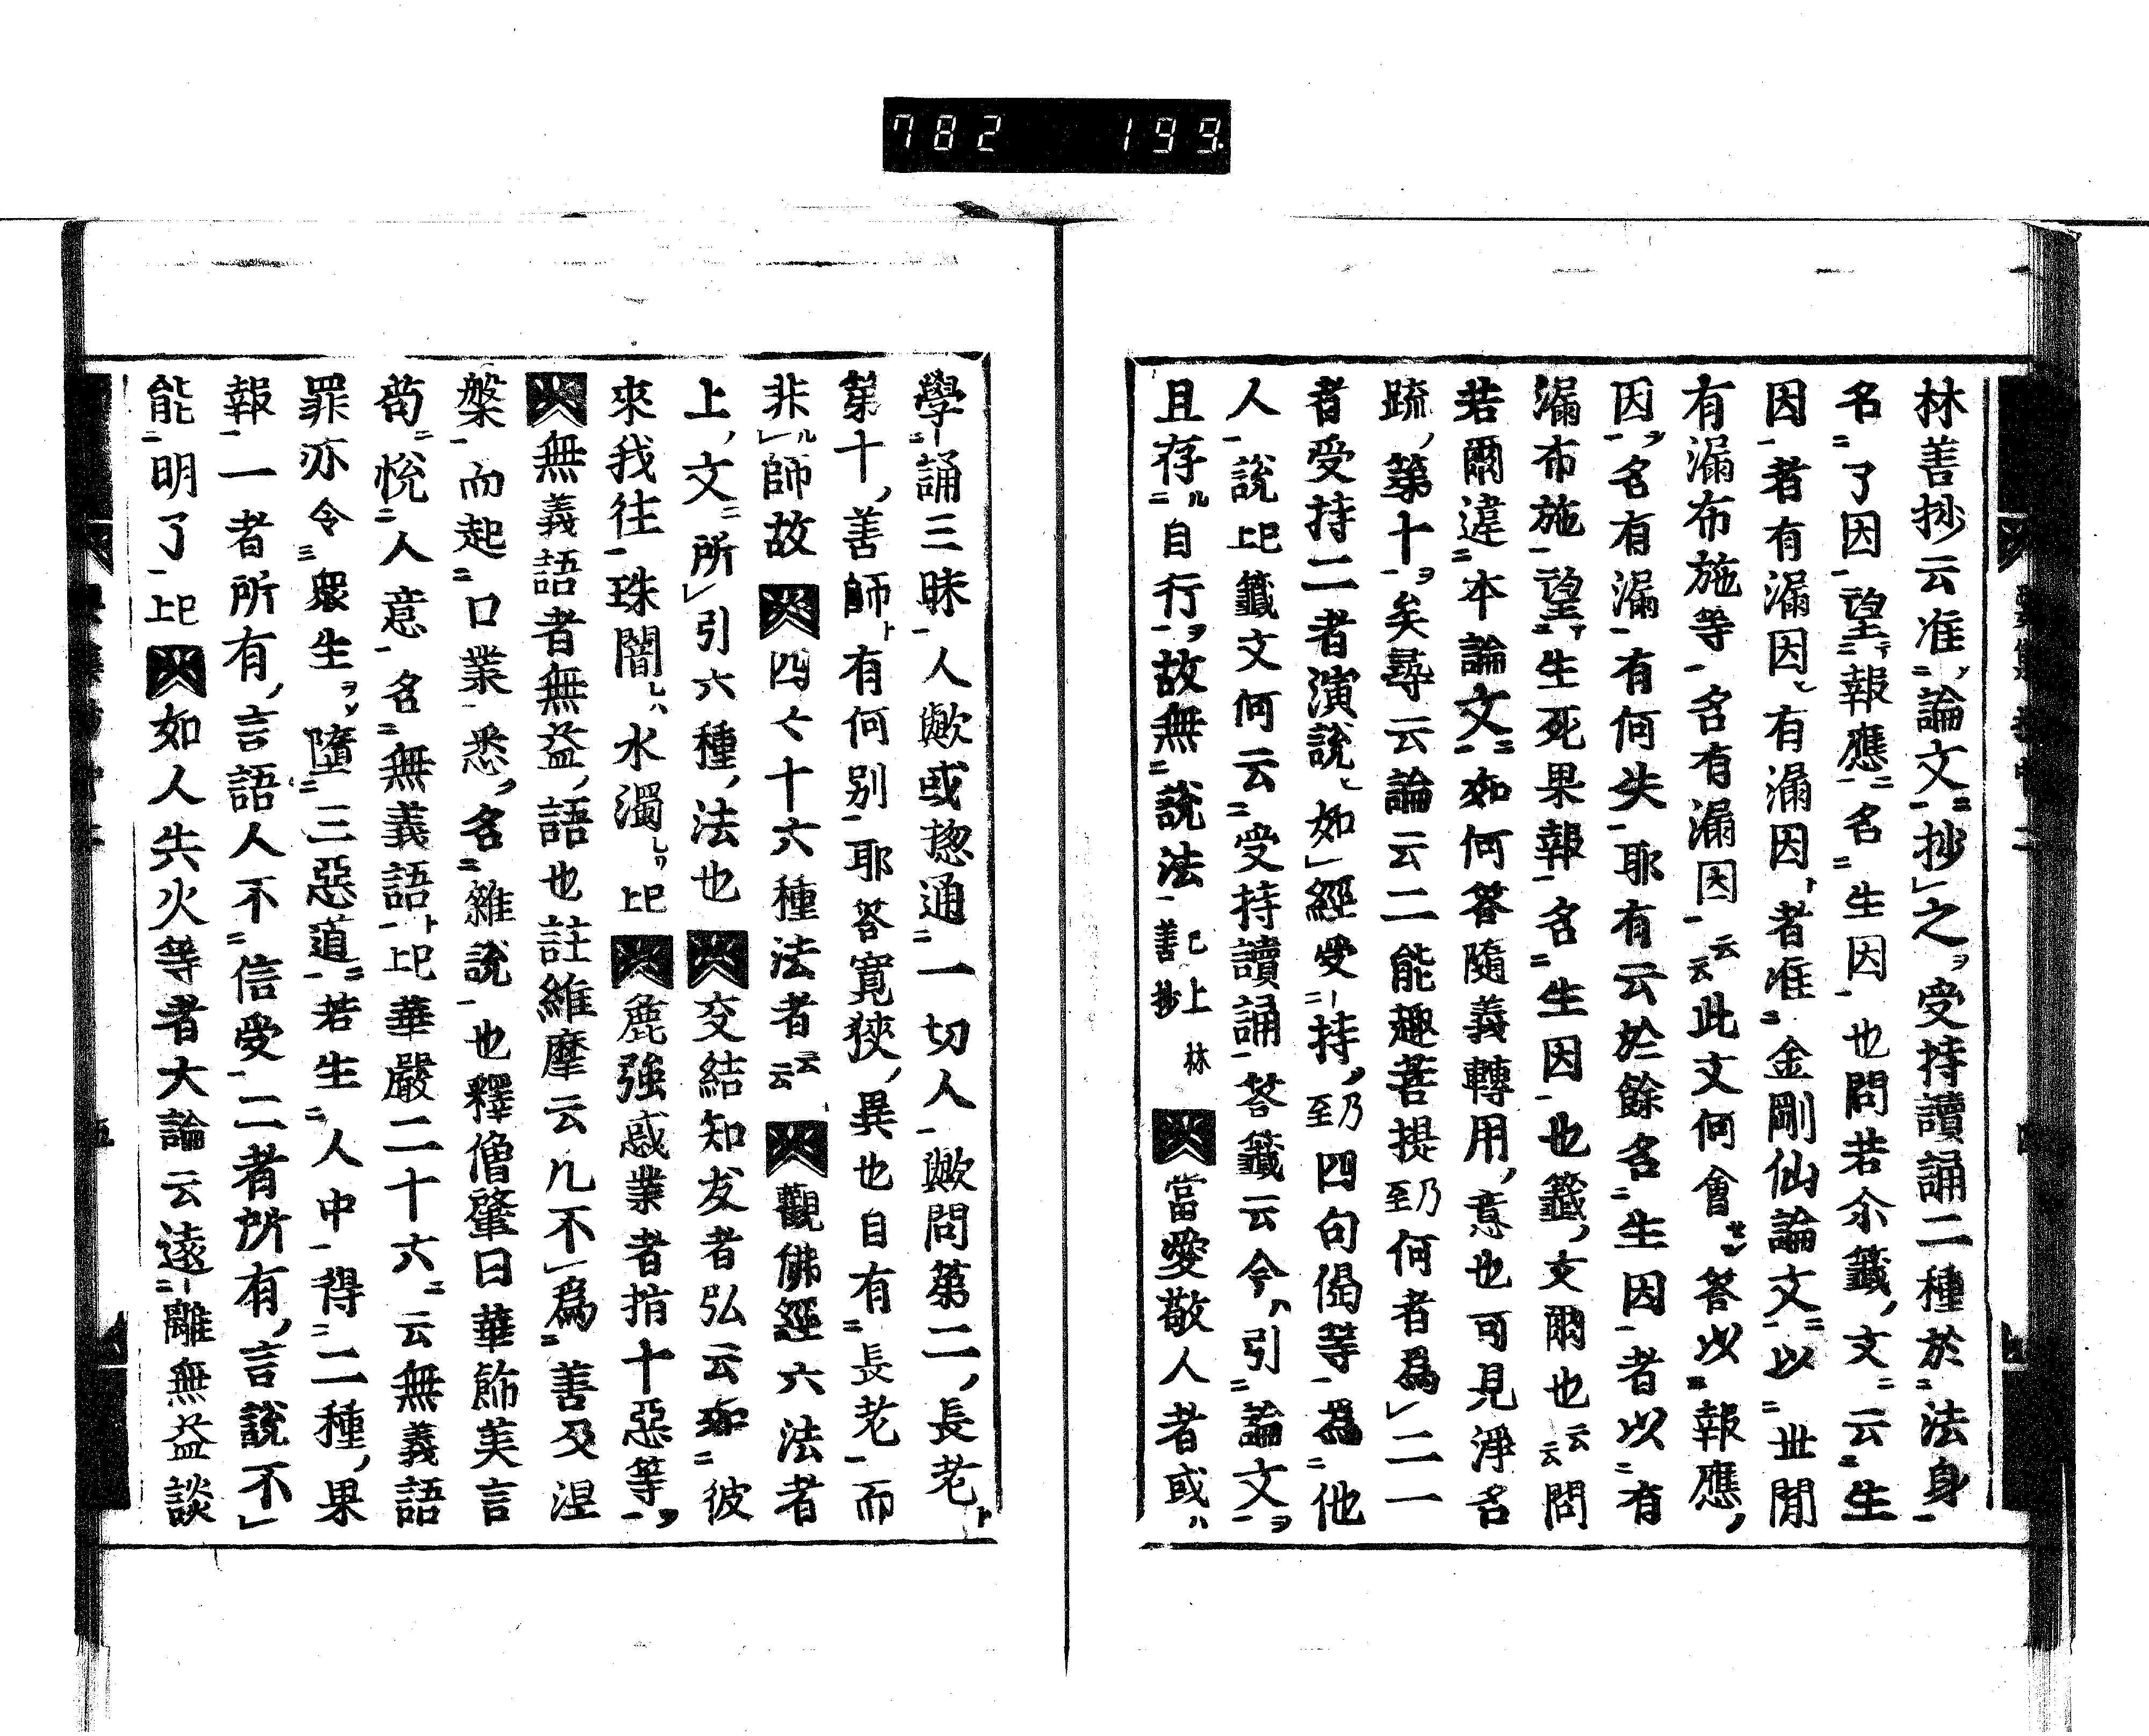 782 199.
林善抄云准論文抄之受持讀誦二種於法身
名了因望報應名生因也問若尒籤文云生
因者有漏因有漏因者准金剛仙論文以世間
有漏布施等名有漏因云云此文何會答以報應
因名有漏有何失耶有云於餘名生因者以有
漏布施望生死果報名生因也籤文爾也云云問
若爾違本論文如何答隨義轉用意也可見淨名
疏第十矣尋云論云二能趣菩提乃至何者為二一
者受持二者演說如經受持乃至四句偈等為他
人說上已籤文何云受持讀誦答籤云今引論文
且存自行故無說法已上林善抄 當愛敬人者或
學誦三昧人歟或惣通一切人歟問第二長老
第十善師有何別耶答寬狹異也自有長老而
非師故 四々十六種法者云云 觀佛經六法者
上文所引六種法也 交結知友者弘云如彼
來我往珠闇水濁上已 麁強惑業者指十惡等
無義語者無益語也註維摩云凡不為善及涅
槃而起口業悉名雜說也釋僧肇曰華飾美言
苟悅人意名無義語上已華嚴二十六云無義語
罪亦令眾生墮三惡道若生人中得二種果
報一者所有言語人不信受二者所有言說不
能明了上已 如人失火等者大論云遠離無益談